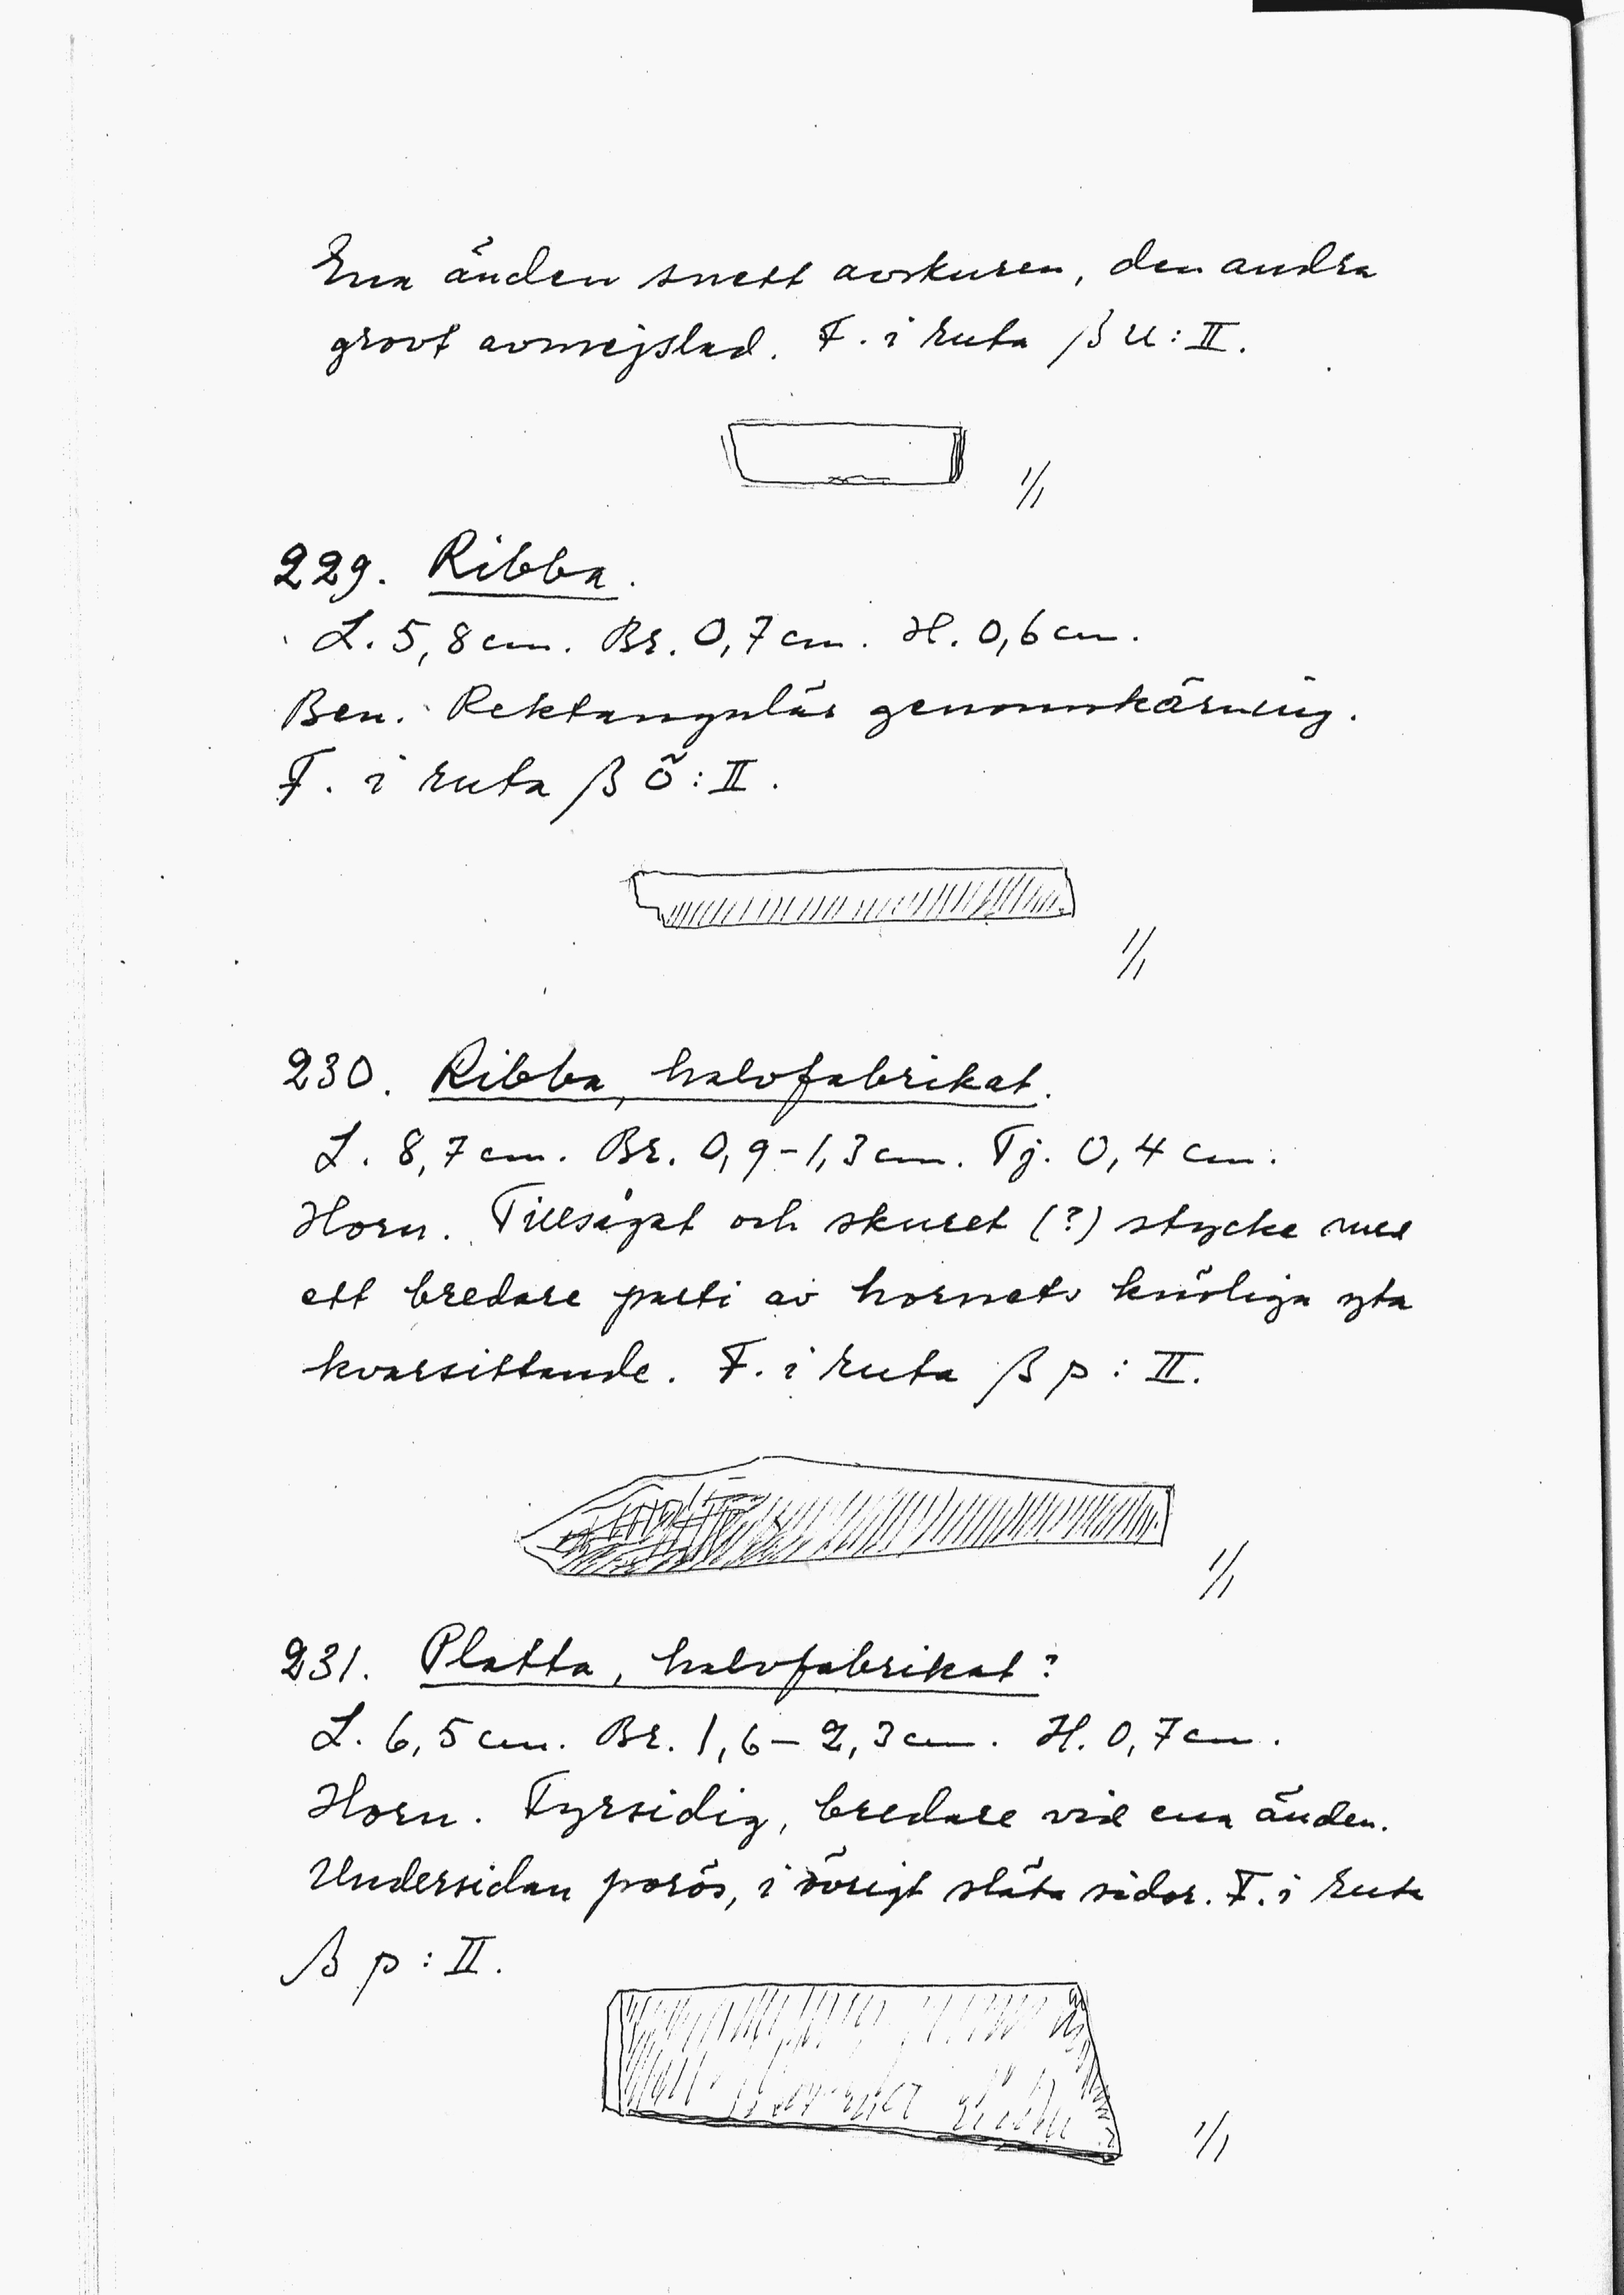 Ena änden snett avskuren, den andra
grovt avmejslad. F. i ruta β u: II.
1/1
229. Ribba.
L. 5,8 cm. Br. 0,7 cm. H. 0,6 cm.
Ben. Rektangulär genomskärning.
F. i ruta β ö: II.
1/1
230. Ribba, halvfabrikat.
L. 8,7 cm. Br. 0,9-1,3 cm. Tj. 0,4 cm.
Horn. Tillsågat och skuret (?) stycke med
ett bredare parti av hornets knöliga yta
kvarsittande. F. i ruta β p: II.
1/1
231. Platta, halvfabrikat?
L. 6,5 cm. Br. 1,6-2,3 cm. H. 0,7 cm.
Horn. Fyrsidig, bredare vid ena änden.
Undersidan porös, i övrigt släta sidor. F. i ruta
β p: II.
1/1